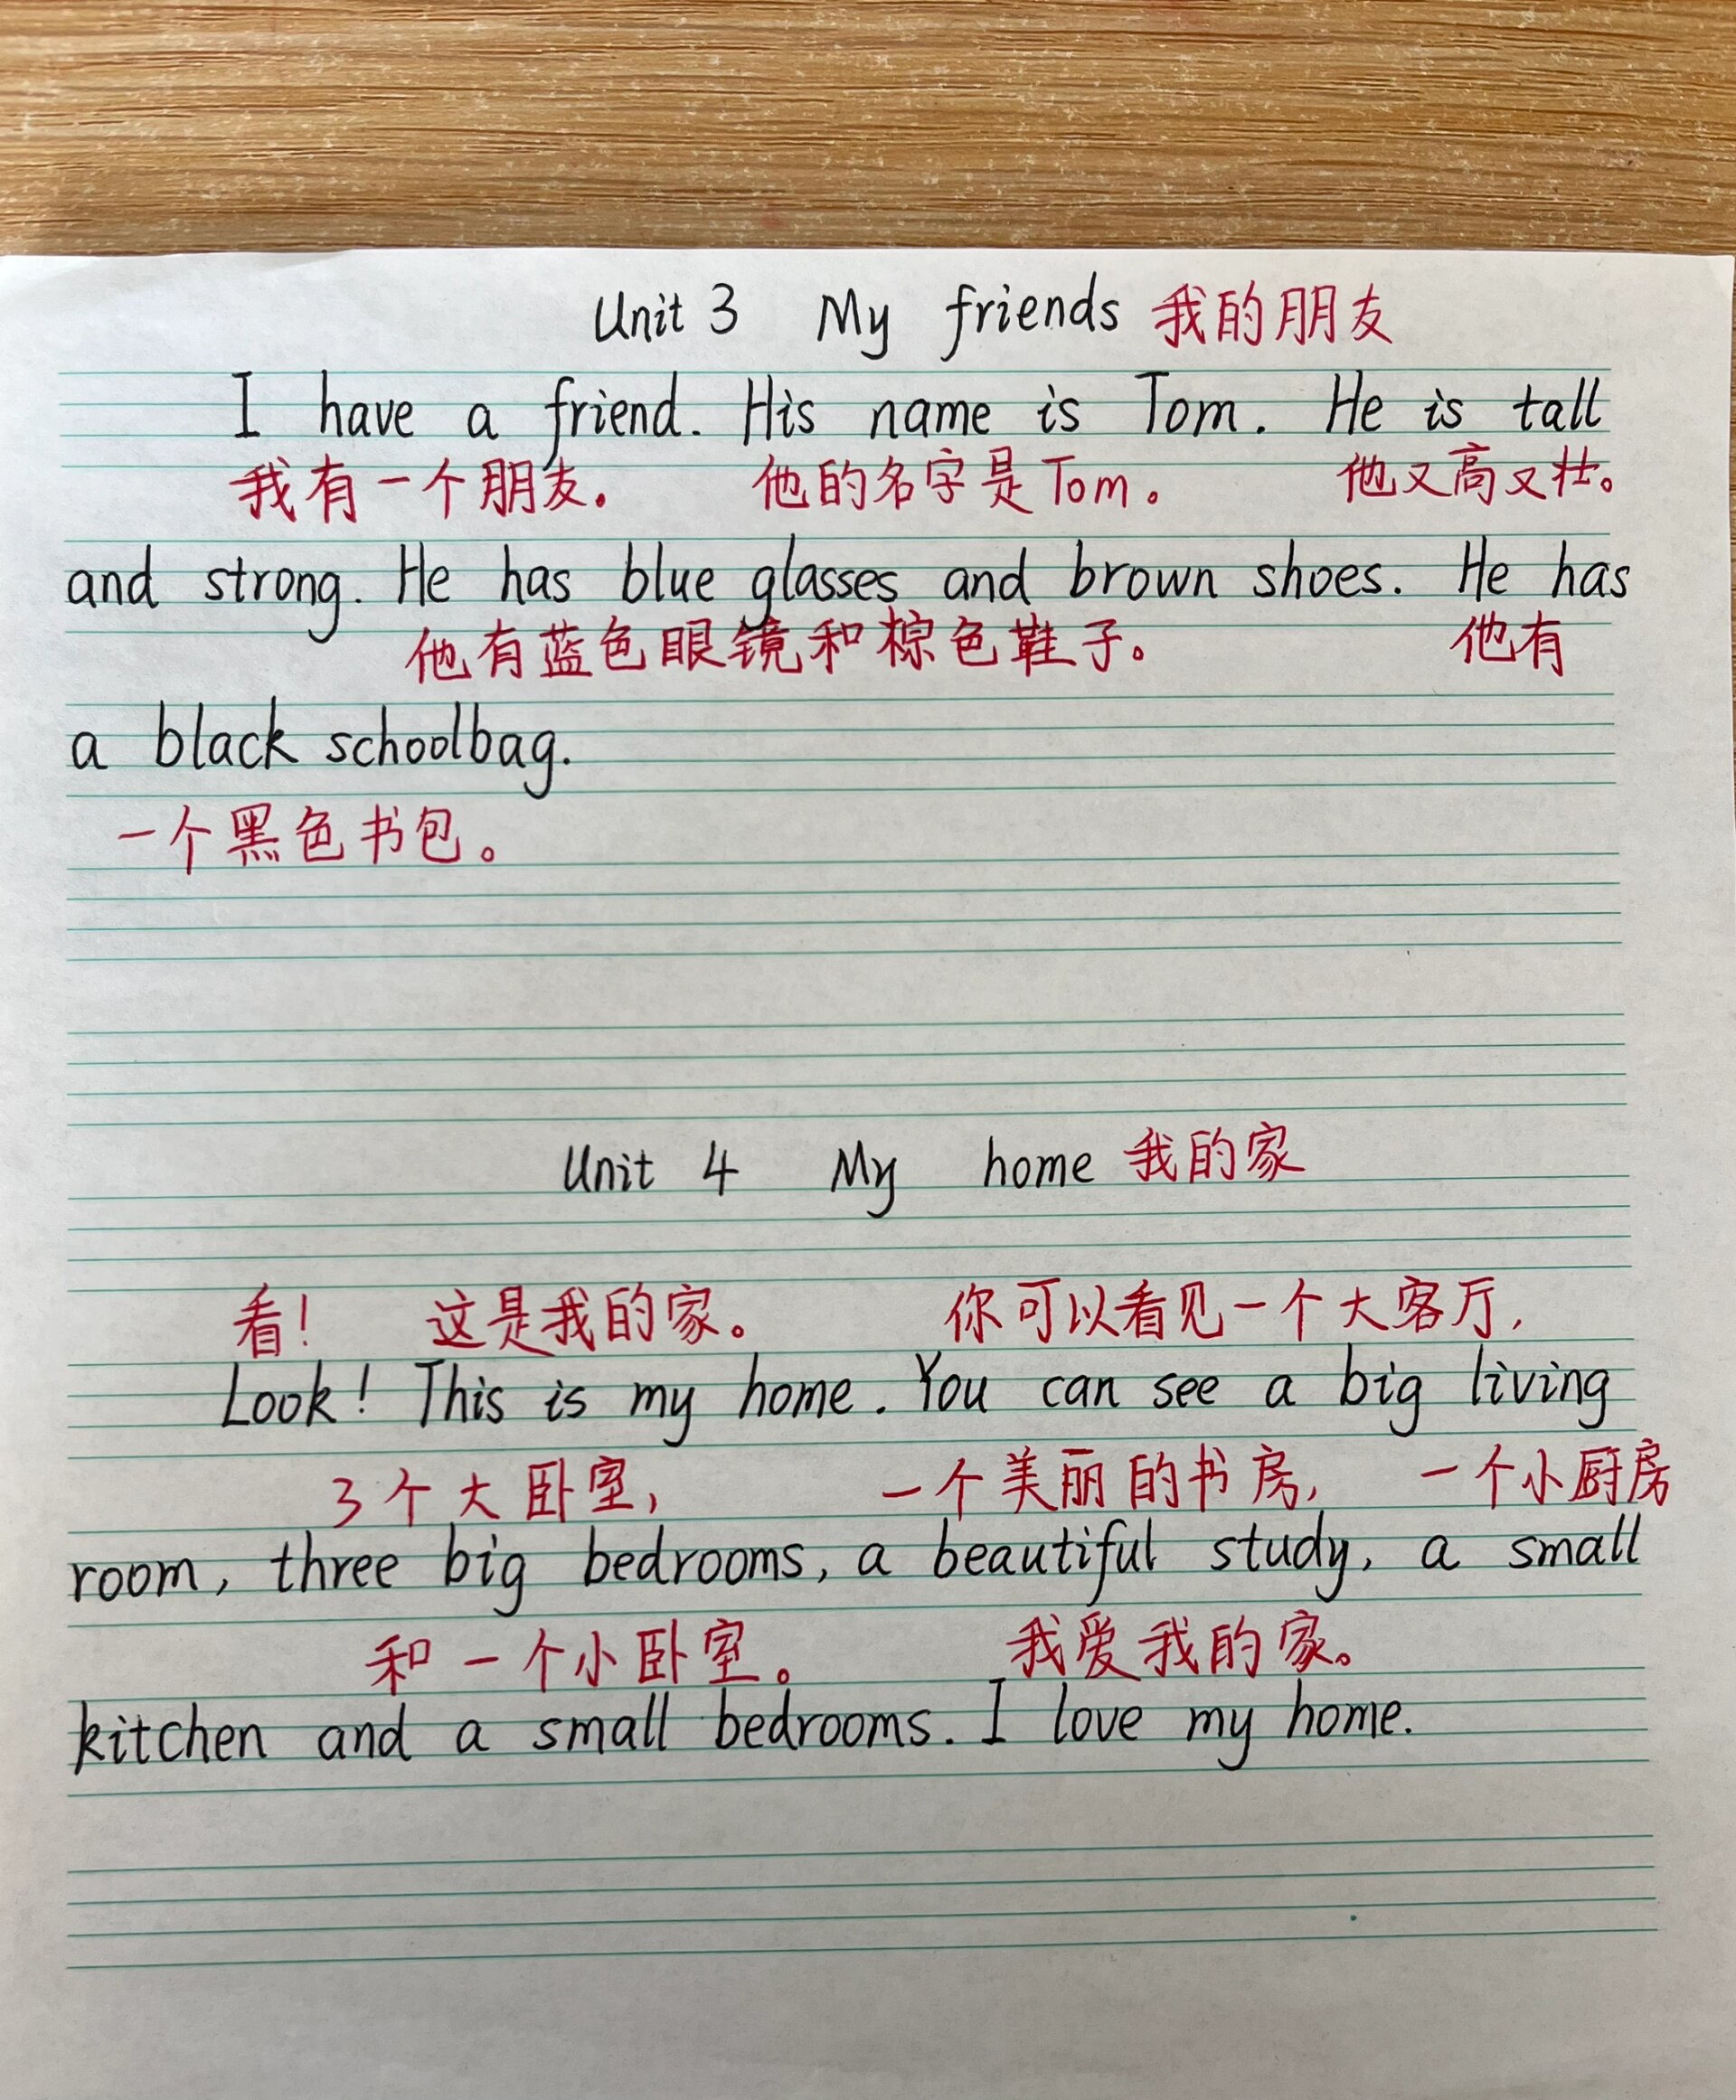 Unit 3 My friends 我的朋友
I have a friend. His name is Tom. He is tall
我有一个朋友。 他的名字是Tom。 他又高又壮。
and strong. He has blue glasses and brown shoes. He has
他有蓝色眼镜和棕色鞋子。 他有
a black schoolbag.
一个黑色书包。
Unit 4 My home 我的家
看! 这是我的家。 你可以看见一个大客厅,
Look! This is my home. You can see a big living
3个大卧室, 一个美丽的书房, 一个小厨房
room, three big bedrooms, a beautiful study, a small
和一个小卧室。 我爱我的家。
kitchen and a small bedrooms. I love my home.